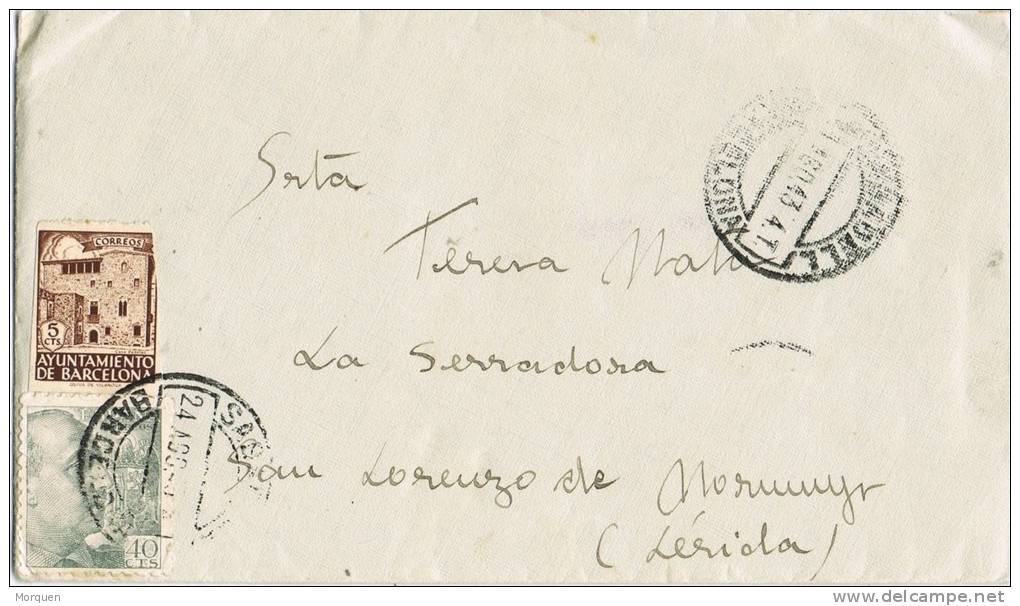 Srta
Teresa Mata
La Serradora
San Lorenzo de Morunys
(Lérida)
CORREOS
5
CTS
AYUNTAMIENTO
DE BARCELONA
40
CTS
24 AGO
AGO 43 4.T
Morquen
delcampe.net